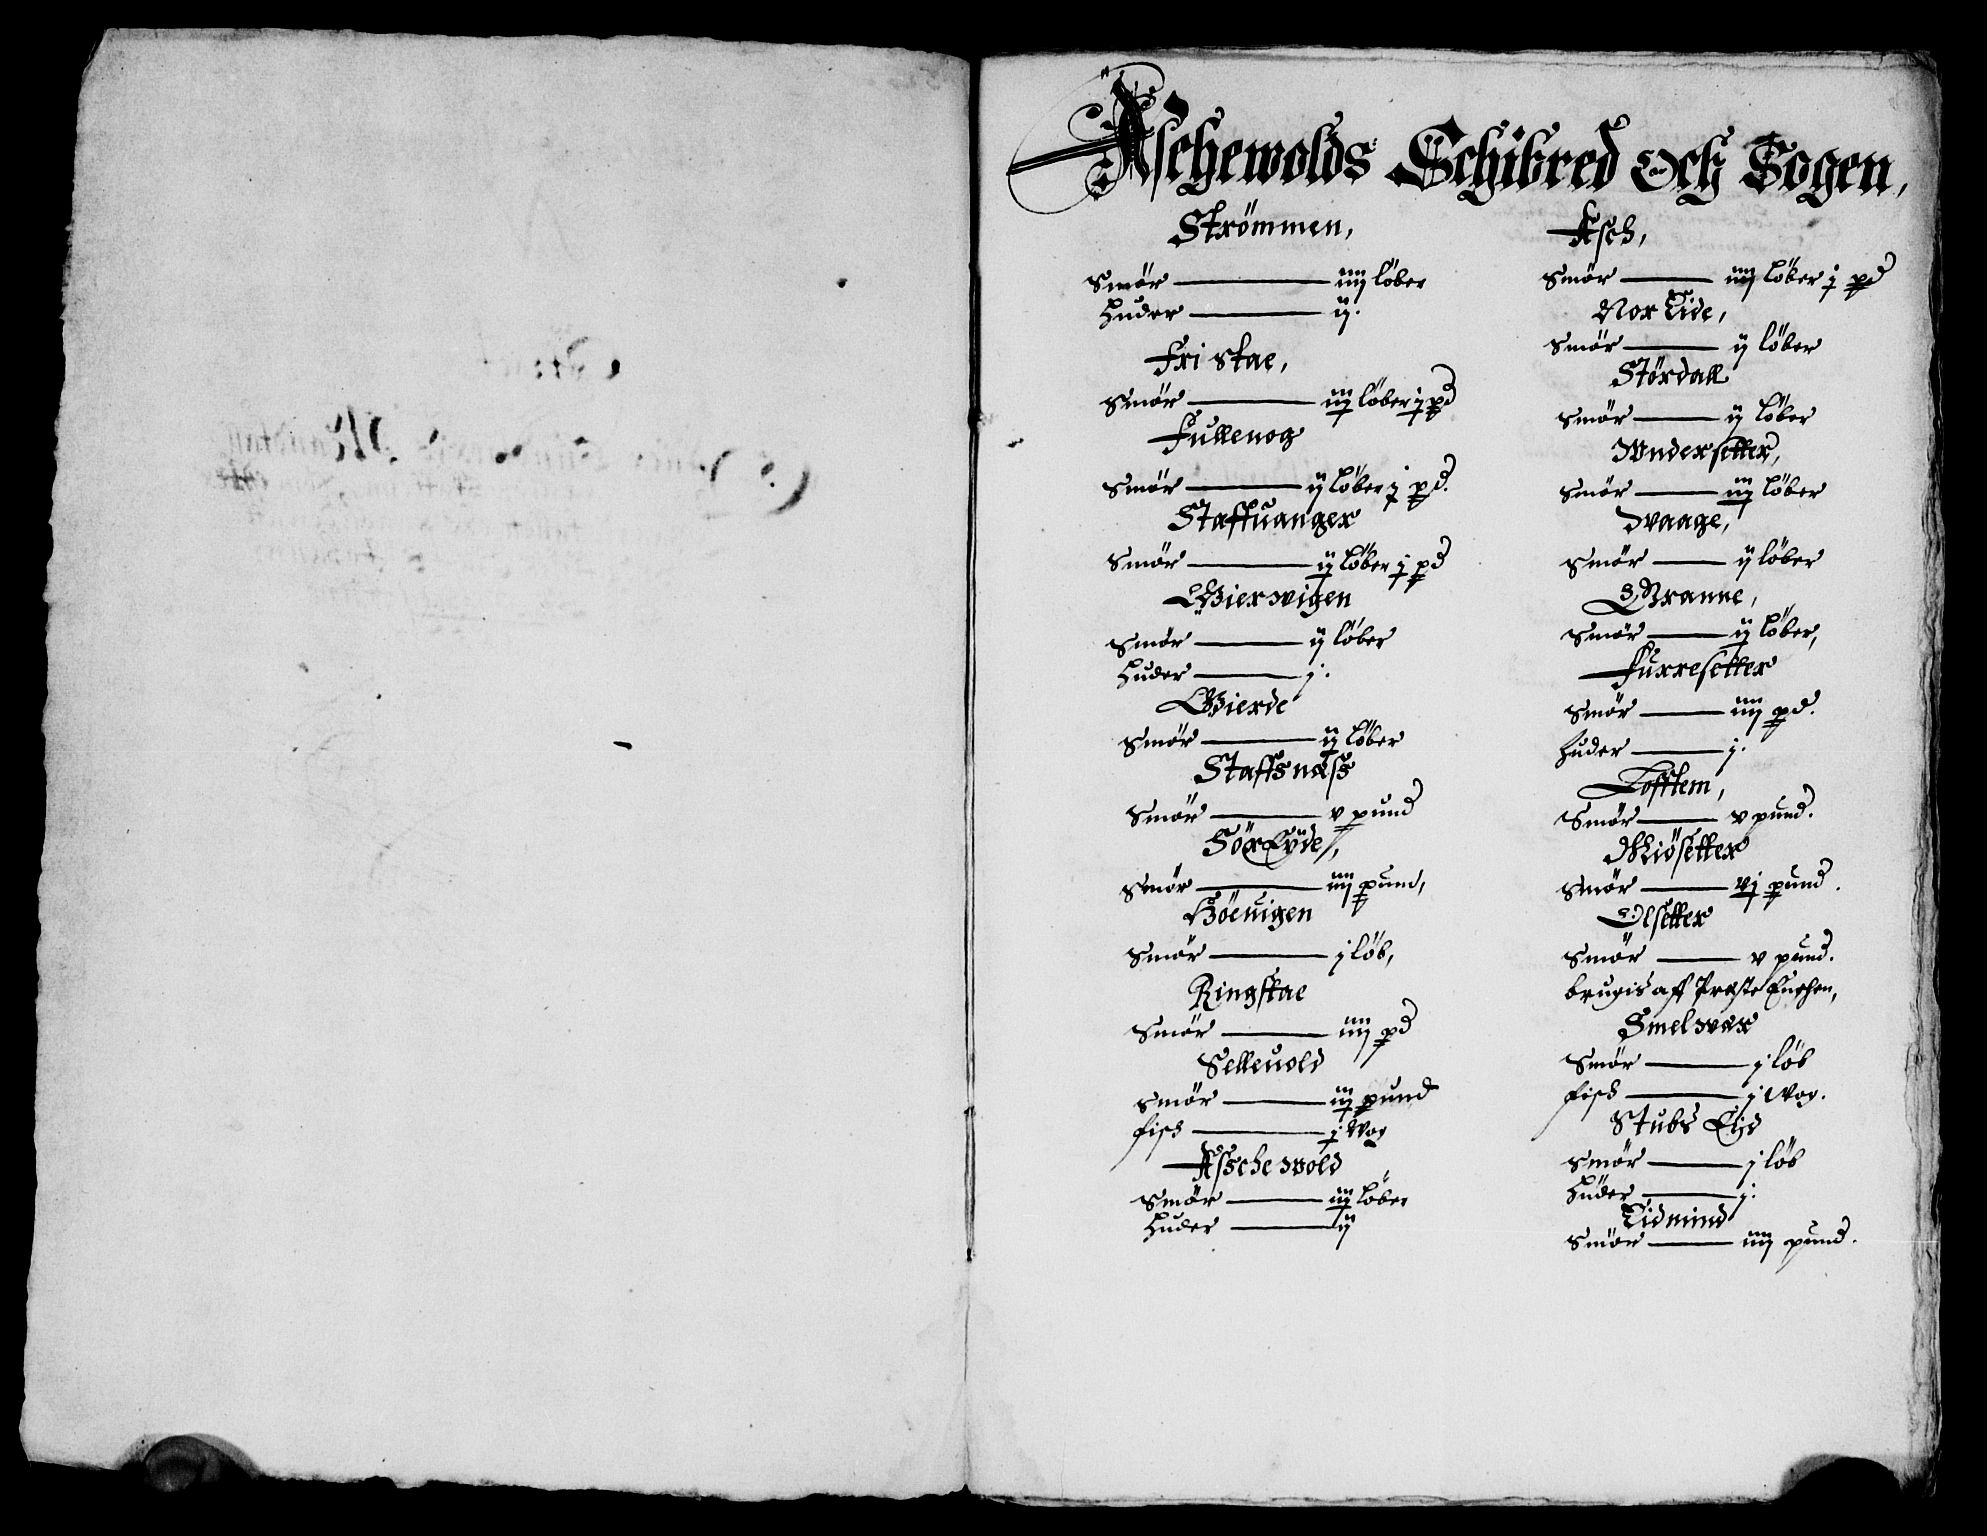 Aschewolds Schibred Och Sogen,
Strömmen,
Smör ——— iiij löber
Huder ——— ij.
Fristae,
Smör ——— iij löber j pd
Fullenog
Smör ——— ij löber j pd.
Staffuanger
Smör ——— ij löber j pd
Gierwigen
Smör ——— ij löber
Huder ——— j.
Gierde
Smör ——— ij löber
Staffsness
Smör ——— v pund
Sör Eyde,
Smör ——— iiij pund,
Höeuigen
Smör ——— j löb,
Ringstae
Smör ——— iiij pd
Selleuold
Smör ——— iij pund
fisk ——— j Wog
Asschewold
Smör ——— iij löber
Huder ——— ij
Asch,
Smör ——— iiij löber j pd
Nor Eide,
Smör ——— ij löber
Stördall
Smör ——— ij löber
Wndersetter,
Smör ——— iij löber
Waage,
Smör ——— ij löber
Granne,
Smör ——— ij löber,
Furresetter
Smör ——— iiij pd.
Huder ——— j.
Tofftem,
Smör ——— v pund.
Miösetter
Smör ——— vj pund.
Olsetter
Smör ——— v pund.
brugis aff Præste Enchen,
Smelwær
Smör ——— j löb
fisk ——— j Wog.
Stubs Eid
Smör ——— j löb
Huder ——— j.
Eidmind
Smör ——— iiij pund.